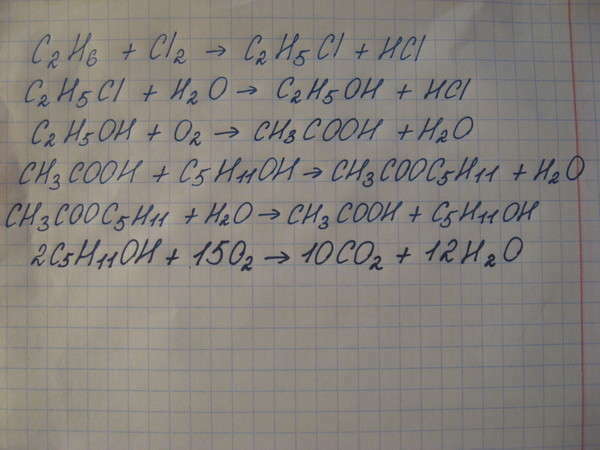 C₂H₆ + Cl₂ → C₂H₅Cl + HCl
C₂H₅Cl + H₂O → C₂H₅OH + HCl
C₂H₅OH + O₂ → CH₃COOH + H₂O
CH₃COOH + C₅H₁₁OH → CH₃COOC₅H₁₁ + H₂O
CH₃COOC₅H₁₁ + H₂O → CH₃COOH + C₅H₁₁OH
2C₅H₁₁OH + 15O₂ → 10CO₂ + 12H₂O